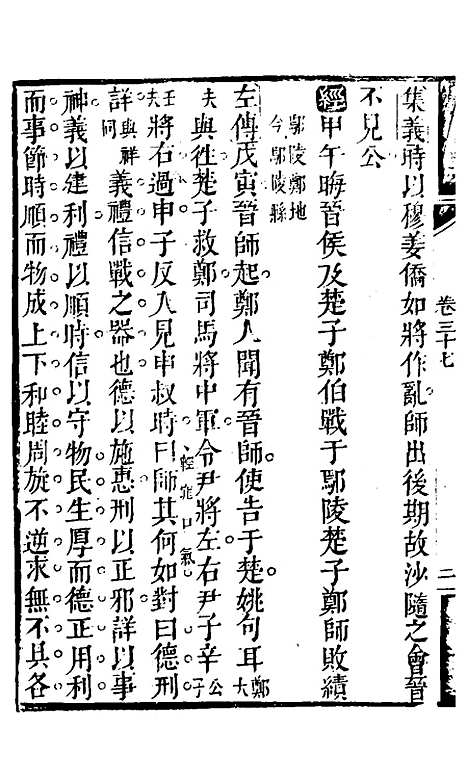 卷三十七
二
集義時以穆姜僑如將作亂師出後期故沙隨之會晉
不見公
經甲午晦晉侯及楚子鄭伯戰于鄢陵楚子鄭師敗績
鄢陵鄭地
今鄢陵縣
左傳戊寅晉師起鄭人聞有晉師使告于楚姚句耳鄭大
夫與往楚子救鄭司馬將中軍令尹將左右尹子辛公子
壬夫將右過申子反入見申叔時曰師其何如對曰德刑
輕窕口氣
詳與祥同義禮信戰之器也德以施惠刑以正邪詳以事
神義以建利禮以順時信以守物民生厚而德正用利
而事節時順而物成上下和睦周旋不逆求無不具各